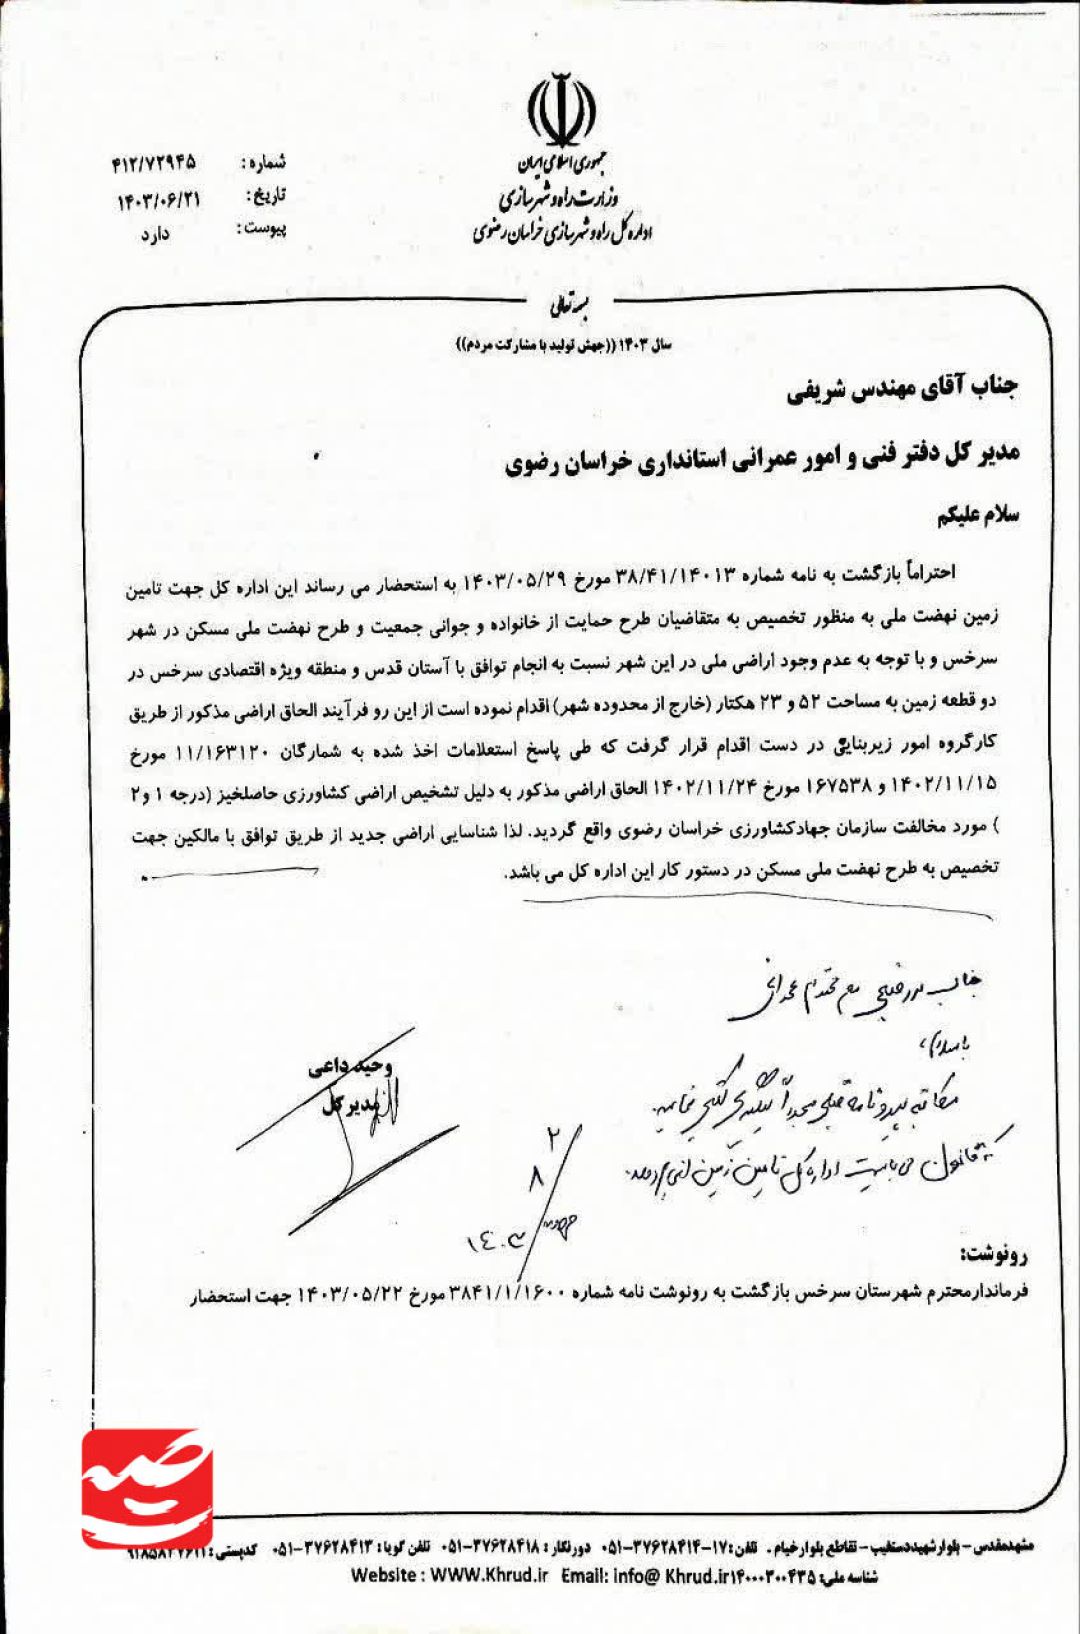 جمهوری اسلامی ایران
وزارت راه و شهرسازی
اداره کل راه و شهرسازی خراسان رضوی
شماره: ۴۱۲/۷۲۹۴۵
تاریخ: ۱۴۰۳/۰۶/۲۱
پیوست: دارد
بسمه تعالی
سال ۱۴۰۳ ((جهش تولید با مشارکت مردم))
جناب آقای مهندس شریفی
مدیر کل دفتر فنی و امور عمرانی استانداری خراسان رضوی
سلام علیکم
احتراماً بازگشت به نامه شماره ۳۸/۴۱/۱۴۰۱۳ مورخ ۱۴۰۳/۰۵/۲۹ به استحضار می رساند این اداره کل جهت تامین
زمین نهضت ملی به منظور تخصیص به متقاضیان طرح حمایت از خانواده و جوانی جمعیت و طرح نهضت ملی مسکن در شهر
سرخس و با توجه به عدم وجود اراضی ملی در این شهر نسبت به انجام توافق با آستان قدس و منطقه ویژه اقتصادی سرخس در
دو قطعه زمین به مساحت ۵۲ و ۲۳ هکتار (خارج از محدوده شهر) اقدام نموده است از این رو فرآیند الحاق اراضی مذکور از طریق
کارگروه امور زیربنایی در دست اقدام قرار گرفت که طی پاسخ استعلامات اخذ شده به شمارگان ۱۱/۱۶۳۱۲۰ مورخ
۱۴۰۲/۱۱/۱۵ و ۱۶۷۵۳۸ مورخ ۱۴۰۲/۱۱/۲۴ الحاق اراضی مذکور به دلیل تشخیص اراضی کشاورزی حاصلخیز (درجه ۱ و ۲
) مورد مخالفت سازمان جهادکشاورزی خراسان رضوی واقع گردید. لذا شناسایی اراضی جدید از طریق توافق با مالکین جهت
تخصیص به طرح نهضت ملی مسکن در دستور کار این اداره کل می باشد.
جناب محترم عمرانی
با سلام،
مکاتبه پیرو نامه قبلی مجدداً پیگیری کتبی نمایید
که قانون می بایست اداره کل تامین زمین انجام دهد.
وحید داعی
مدیر کل
۲
۸
۱۴۰۳
رونوشت:
فرماندار محترم شهرستان سرخس بازگشت به رونوشت نامه شماره ۳۸۴۱/۱/۱۶۰۰ مورخ ۱۴۰۳/۰۵/۲۲ جهت استحضار
مشهدمقدس - بلوارشهیددستغیب - تقاطع بلوارخیام . تلفن: ۱۷-۳۷۶۲۸۴۱۴-۰۵۱ دورنگار: ۳۷۶۲۸۴۱۸-۰۵۱ تلفن گویا: ۳۷۶۲۸۴۱۳-۰۵۱ کدپستی:
شناسه ملی: ۱۴۰۰۰۳۰۰۴۳۵ Website : WWW.Khrud.ir Email: info@ Khrud.ir